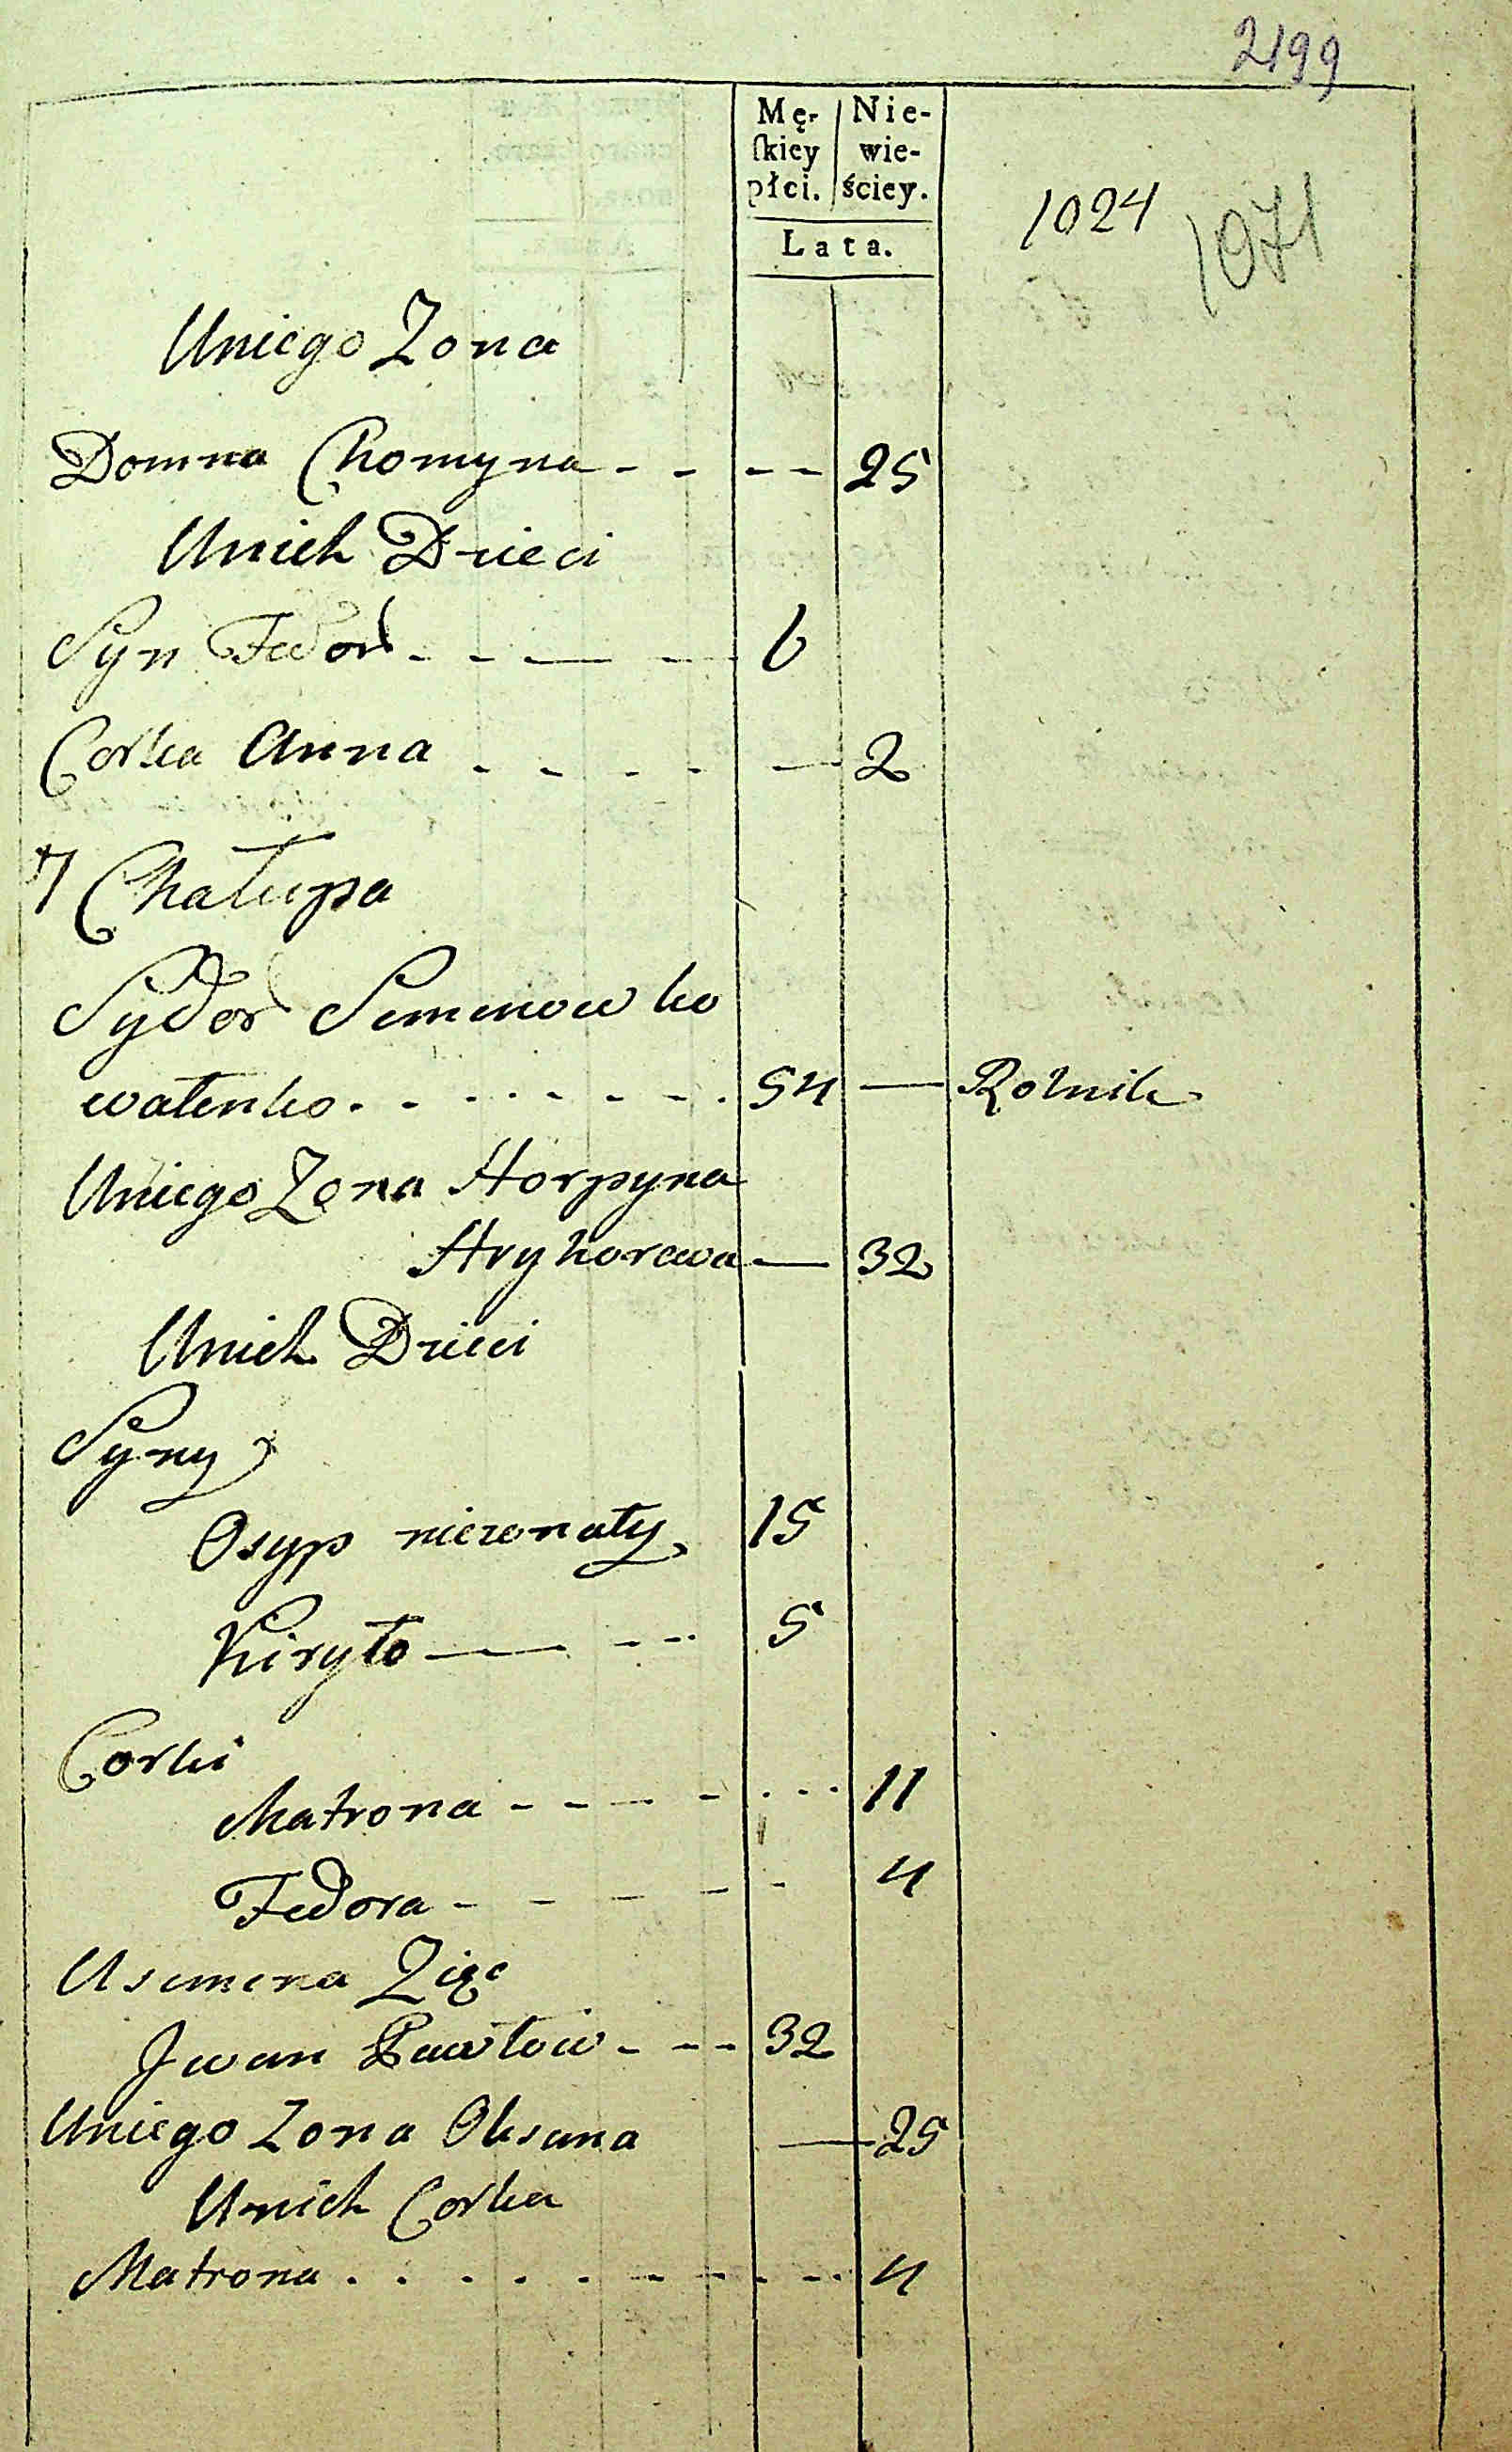 2199
Mę- Nie-
ſkiey wie-
płci. ściey.
Lata.
1024 1071
Uniego Zona
Domna Chomyna - - - - 25
Unich Dzieci
Syn Fedor - - — - 6
Corka Anna - - - - — 2
7 Chałupa
Sydor Semenow ko
walenko - - - - - - - 54 — Rolnik
Uniego Zona Horpyna
Hryhorewa — 32
Unich Dzieci
Syny
Osyp niezonaty 15
Kiryło — - - - 5
Corki
Matrona - - - - - - - 11
Fedora - - - - - 4
Usemena Zięc
Jwan Pawłow - - - 32
Uniego Zona Oksana — 25
Unich Corka
Matrona . . . . . . - - - - 4